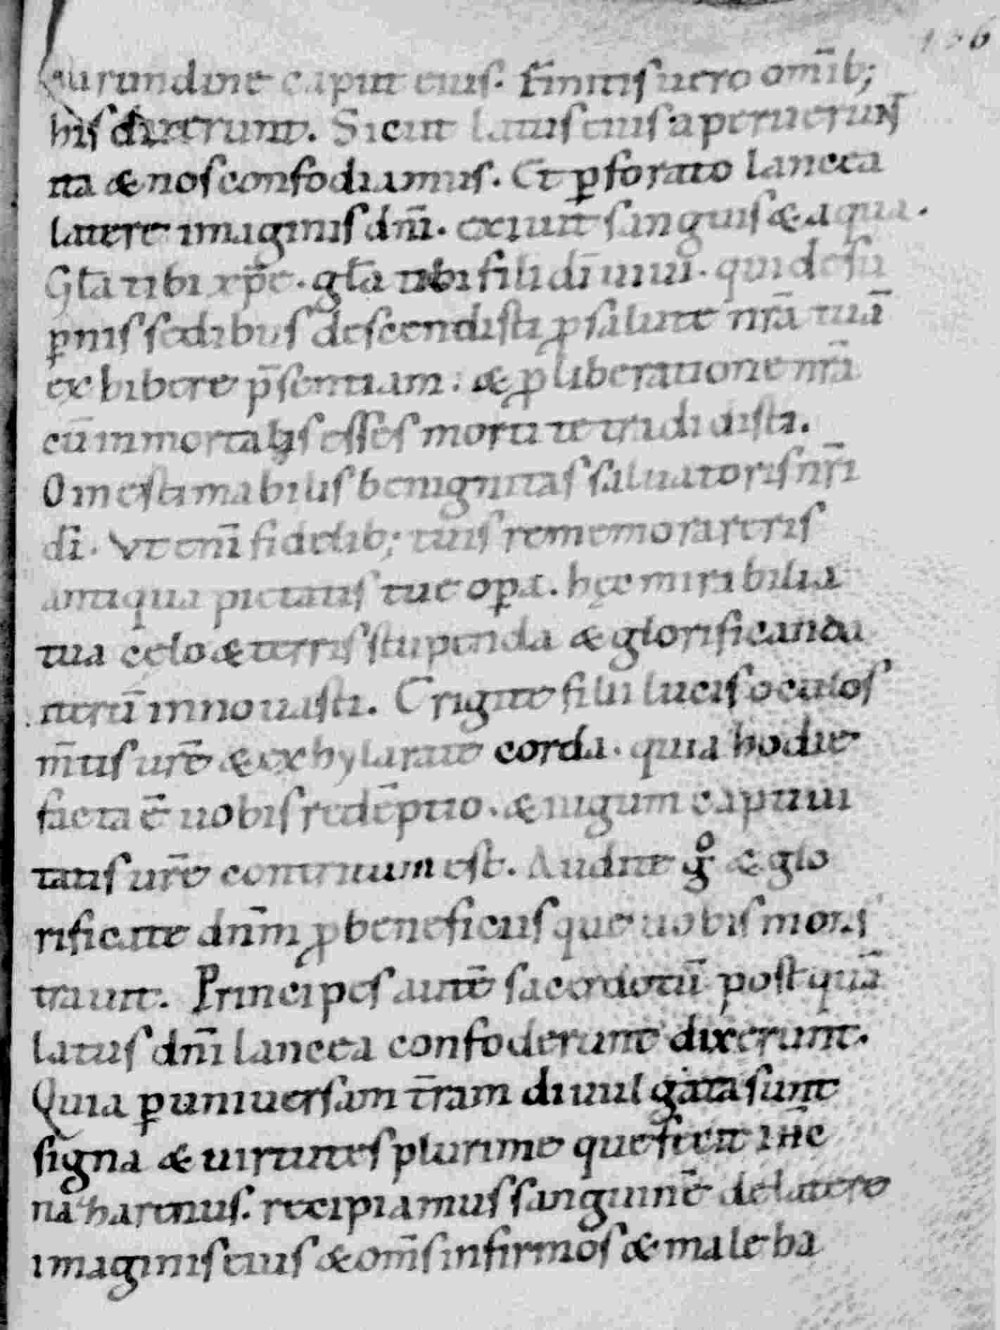 arundine caput eius. Finitis uero omīb;
his dixerunt. Sicut latus eius aperuerunt
ita & nos confodiamus. Et ꝑforato lancea
latere imaginis dn̄i. exiuit sanguis & aqua.
Gła tibi xp̄e. gła tibi fili dī uiui. qui de su
ꝑnis sedibus descendisti ꝓ salute nr̄a tuā
exhibere p̄sentiam. & ꝓ liberatione nr̄a
cū inmortalis esses morti te tradidisti.
O inestimabilis benignitas saluatoris nr̄i
dī. Vt enī fidelib; tuis rememorareris
antiqua pietatis tue oꝑa. hęc mirabilia
tua cęlo & terris stupenda & glorificanda
iterū innouasti. Erigite filii lucis oculos
m̄tis ur̄e & exhylarate corda. quia hodie
facta ē uobis redēptio. & iugum captiui
tatis ur̄e contritum est. Audite gͦ & glo
rificate dn̄m ꝓ beneficiis que uobis mons
trauit. Principes autē sacerdotū postquā
latus dn̄i lancea confoderunt dixerunt.
Quia ꝑ uniuersam t̄ram diuulgata sunt
signa & uirtutes plurime que fecit ihc̄
nazarenus. recipiamus sanguinē de latere
imaginis eius & om̄s infirmos & male ha